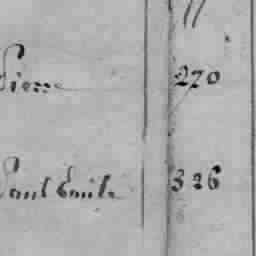 Pierre 270
Paul Emile 326